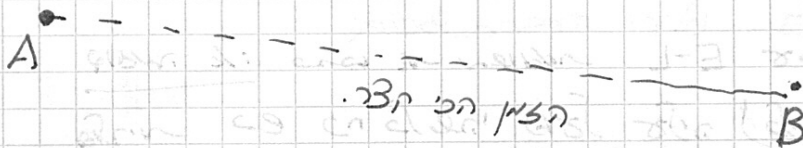 A
הזמן הכי קצר.
B